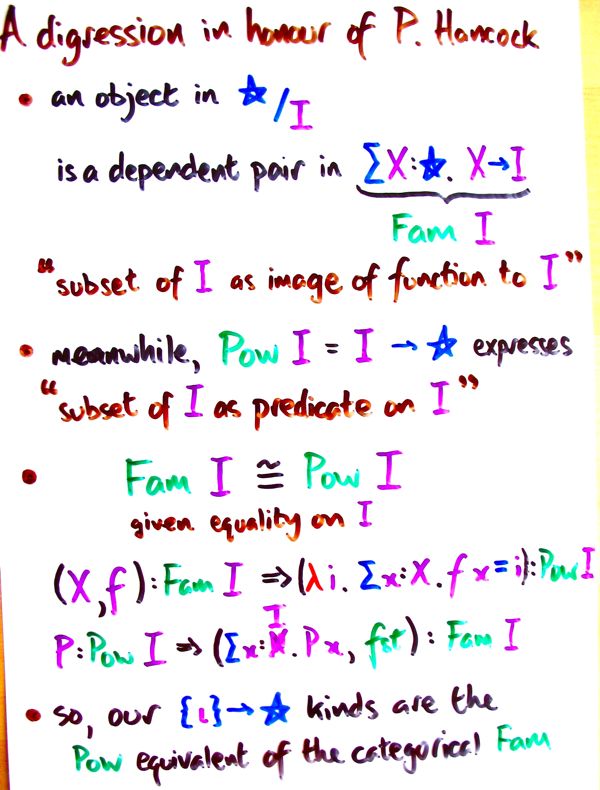 A digression in honour of P. Hancock
• an object in ★/I
is a dependent pair in ΣX:★. X→I
Fam I
"subset of I as image of function to I"
• meanwhile, Pow I = I → ★ expresses
"subset of I as predicate on I"
• Fam I ≅ Pow I
given equality on I
(X,f):Fam I ⇒ (λi. Σx:X. f x = i):Pow I
I
P:Pow I ⇒ (Σx:X. P x, fst) : Fam I
• so, our {ι}→★ kinds are the
Pow equivalent of the categorical Fam